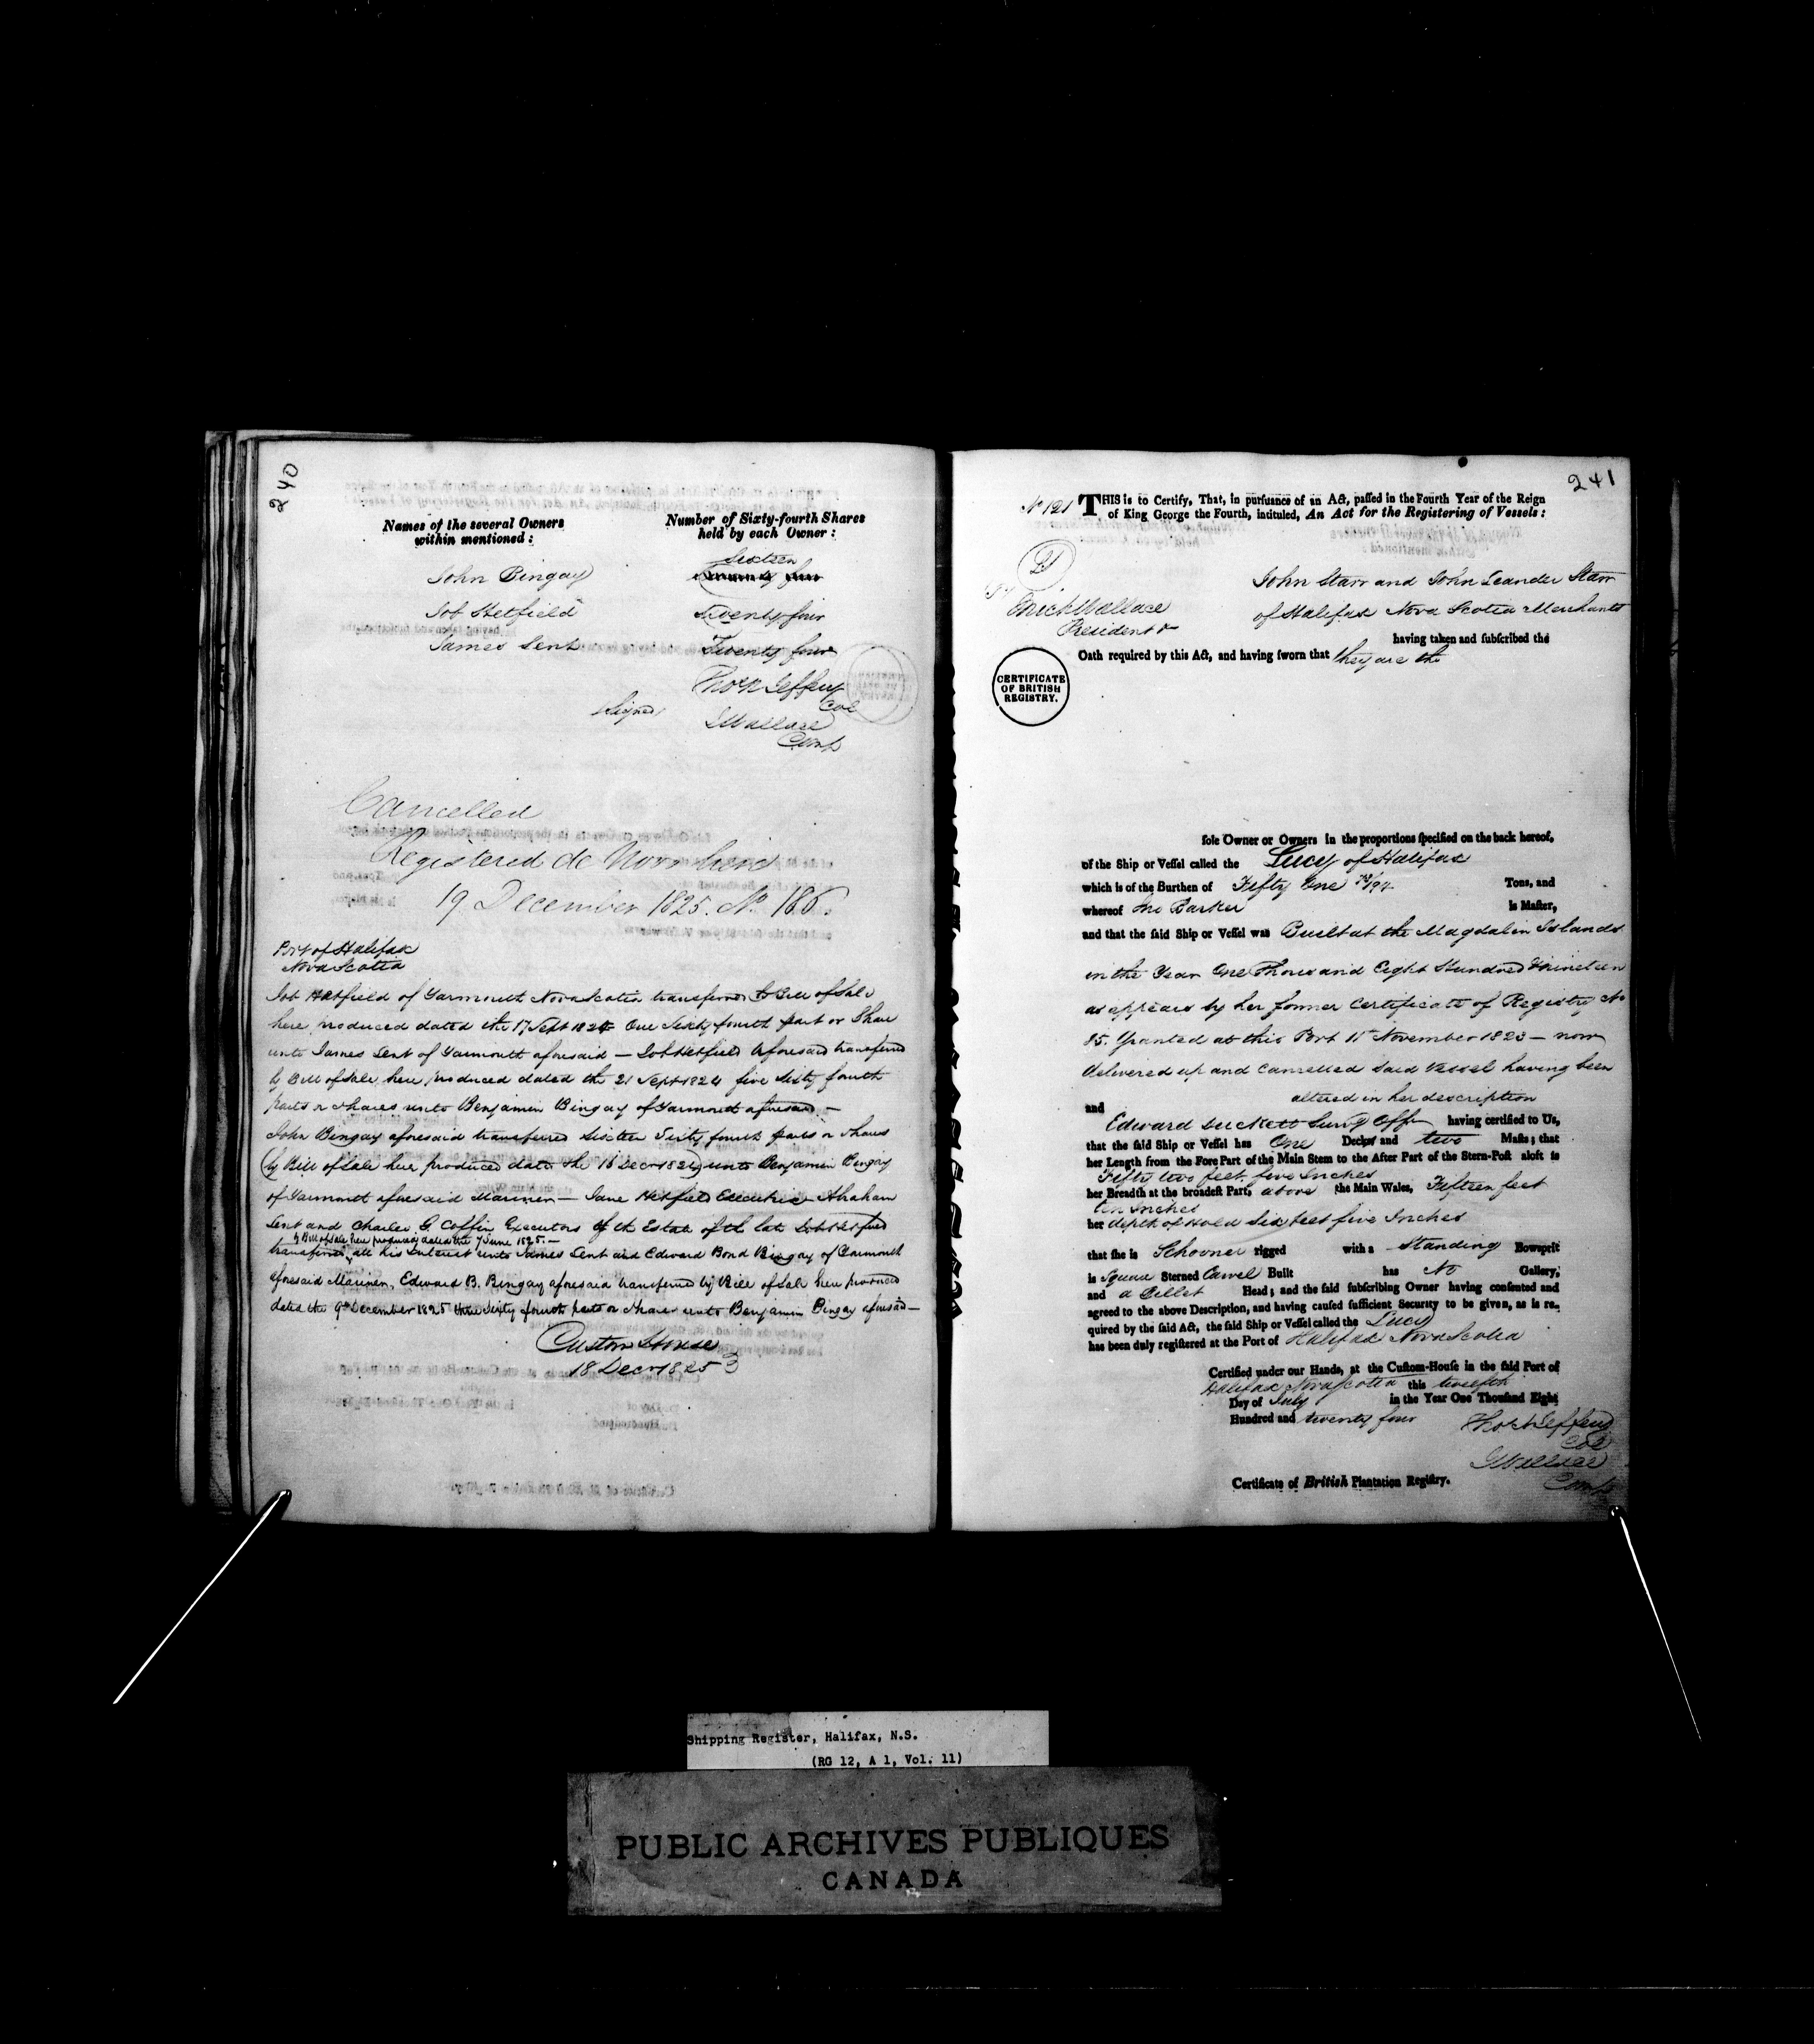 240
Names of the several Owners
within mentioned :
Number of Sixty-fourth Shares
held by each Owner :
Sixteen
John Bingay
Job Hetfield Twenty four
James Lent Twenty four
Thos N Jeffery
Col
Signed
J Wallace
Compr
Cancelled
Registered de Novo here
19 December 1825. No. 186.
Port of Halifax
Nova Scotia
Job Hetfield of Yarmouth Nova Scotia transferred by Bill of Sale
here produced dated the 17 Sept 1824 One Sixty fourth part or Share
unto James Lent of Yarmouth aforesaid — Job Hetfield aforesaid transferred
by Bill of Sale here produced dated the 21 Sept 1824 five Sixty fourth
parts or shares unto Benjamin Bingay of Yarmouth aforesaid. —
John Bingay aforesaid transferred Sixteen Sixty fourth parts or shares
by Bill of Sale here produced dated the 16 Decr 1824 unto Benjamin Bingay
of Yarmouth aforesaid Mariner — Jane Hetfield Executrix Abraham
Lent and Charles G. Coffin Executors of the Estate of the late Job Hetfield
by Bill of Sale here produced dated the 7 June 1825. —
transferred all his interest unto James Lent and Edward Bond Bingay of Yarmouth
aforesaid Mariner, Edward B. Bingay aforesaid transferred by Bill of Sale here produced
dated the 9th December 1825 three Sixty fourth parts or shares unto Benjamin Bingay aforesaid —
Custom House
18 Decr 1825
241
No 121 THIS is to Certify, That, in pursuance of an Act, passed in the Fourth Year of the Reign
of King George the Fourth, intituled, An Act for the Registering of Vessels :
John Starr and John Leander Starr
Michl Wallace of Halifax Nova Scotia Merchants
President
having taken and subscribed the
Oath required by this Act, and having sworn that they are the
CERTIFICATE
OF BRITISH
REGISTRY.
sole Owner or Owners in the proportions specified on the back hereof,
of the Ship or Vessel called the Lucy of Halifax
which is of the Burthen of Fifty One 78/94 Tons, and
whereof Barker is Master,
and that the said Ship or Vessel was Built at the Magdalin Islands
in the Year One Thousand Eight Hundred & nineteen
as appears by her former Certificate of Registry No
85. Granted at this Port 11 November 1823 — now
delivered up and Cancelled Said Vessel having been
altered in her description
and Edward Duckett Survg Offr having certified to Us,
that the said Ship or Vessel has One Decks and two Masts ; that
her Length from the Fore Part of the Main Stem to the After Part of the Stern-Post aloft is
Fifty two feet five Inches
her Breadth at the broadest Part, above the Main Wales, Fifteen feet
ten Inches
her depth of Hold Six feet five Inches
that she is Schooner rigged with a Standing Bowsprit
is Square Sterned Carvel Built has No Gallery,
and a Billet Head ; and the said subscribing Owner having consented and
agreed to the above Description, and having caused sufficient Security to be given, as is re-
quired by the said Act, the said Ship or Vessel called the Lucy
has been duly registered at the Port of Halifax Nova Scotia
Certified under our Hands, at the Custom-House in the said Port of
Halifax Nova Scotia this twelfth
Day of July in the Year One Thousand Eight
Hundred and twenty four
Thos N Jeffery
Col
J Wallace
Compr
Certificate of British Plantation Registry.
Shipping Register, Halifax, N.S.
(RG 12, A 1, Vol. 11)
PUBLIC ARCHIVES PUBLIQUES
CANADA